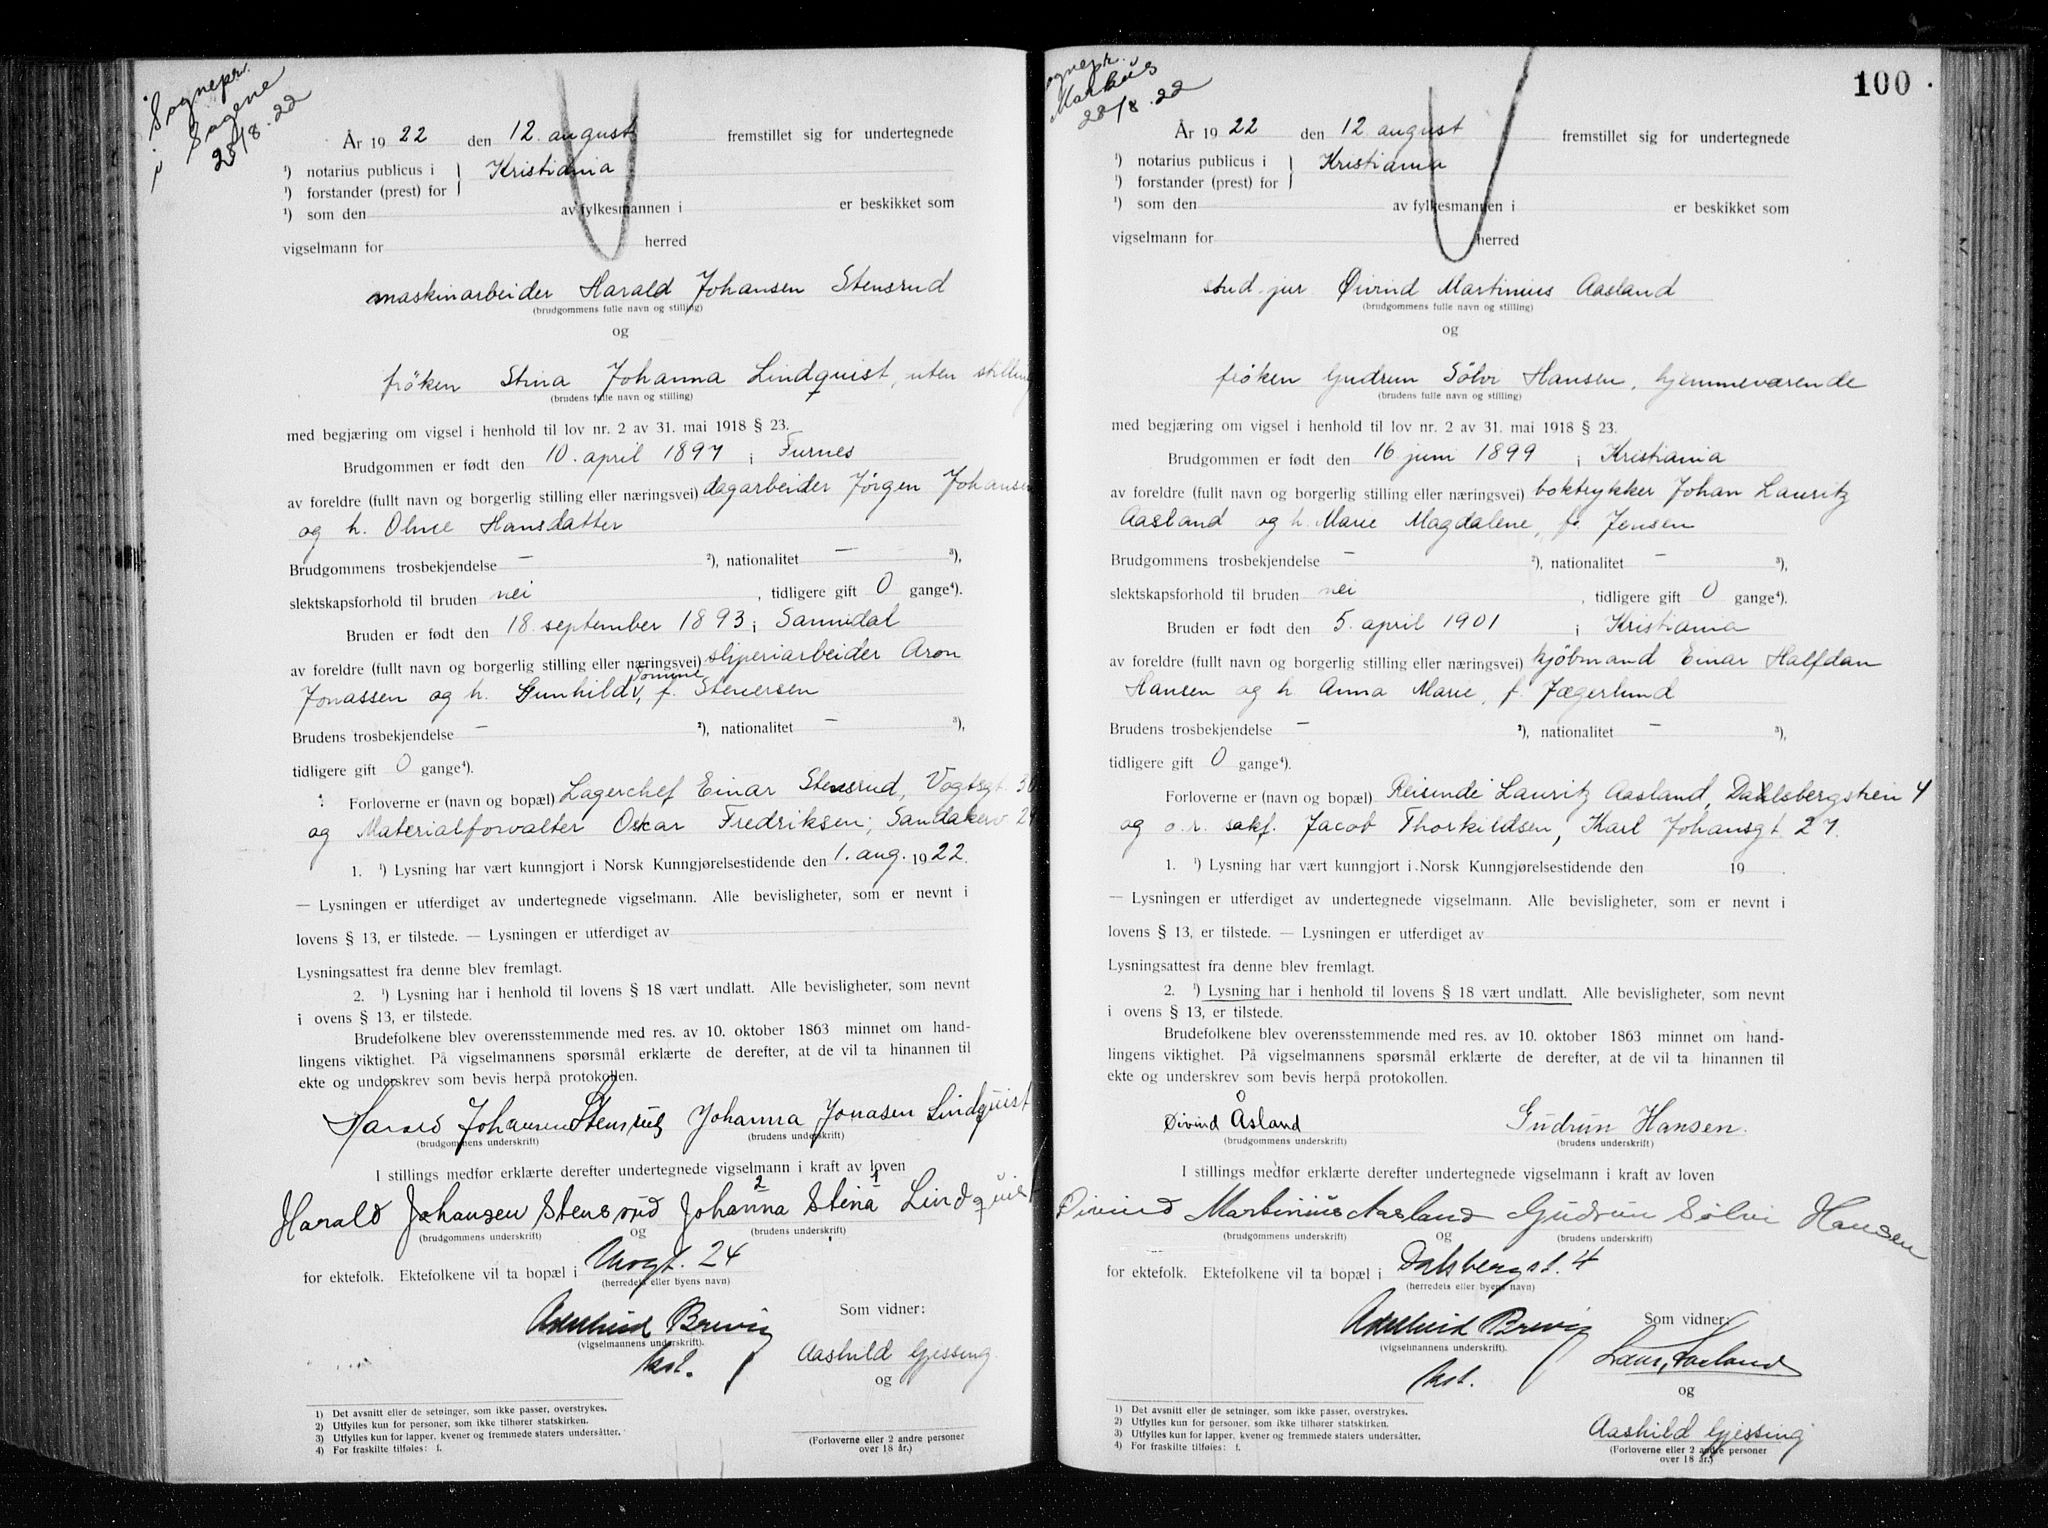 i Sognepr.
i Sagene
28/8.22
År 1922 den 12. august fremstillet sig for undertegnede
¹) notarius publicus i } Kristiania
¹) forstander (prest) for }
¹) som den av fylkesmannen i er beskikket som
vigselmann for herred
maskinarbeider Harald Johansen Stensrud
(brudgommens fulle navn og stilling)
og
frøken Stina Johanna Lindquist, uten stilling
(brudens fulle navn og stilling)
med begjæring om vigsel i henhold til lov nr. 2 av 31. mai 1918 § 23.
Brudgommen er født den 10. april 1897 i Furnes
av foreldre (fullt navn og borgerlig stilling eller næringsvei) dagarbeider Jørgen Johansen
og h. Oline Hansdatter
Brudgommens trosbekjendelse — ²), nationalitet — ³),
slektskapsforhold til bruden nei, tidligere gift 0 gange⁴).
Bruden er født den 18. september 1893 i Sannidal
av foreldre (fullt navn og borgerlig stilling eller næringsvei) sliperiarbeider Aron
Jonassen og h. Gunhild Tomine, f. Stenersen
Brudens trosbekjendelse — ²), nationalitet — ³),
tidligere gift 0 gange⁴).
Forloverne er (navn og bopæl) Lagerchef Einar Stensrud, Vogtsgt.
og Materialforvalter Oskar Fredriksen, Sandakerv
1. ¹) Lysning har vært kunngjort i Norsk Kunngjørelsestidende den 1. aug. 1922.
— Lysningen er utferdiget av undertegnede vigselmann. Alle bevisligheter, som er nevnt i
lovens § 13, er tilstede. — Lysningen er utferdiget av
Lysningsattest fra denne blev fremlagt.
2. ¹) Lysning har i henhold til lovens § 18 vært undlatt. Alle bevisligheter, som nevnt
i ovens § 13, er tilstede.
Brudefolkene blev overensstemmende med res. av 10. oktober 1863 minnet om hand-
lingens viktighet. På vigselmannens spørsmål erklærte de derefter, at de vil ta hinannen til
ekte og underskrev som bevis herpå protokollen.
Harald Johansen Stensrud Johanna Jonasen Lindquist
(brudgommens underskrift) (brudens underskrift)
I stillings medfør erklærte derefter undertegnede vigselmann i kraft av loven
Harald Johansen Stensrud Johanna 2 Stina 1 Lindquist
(brudgommens underskrift) og (brudens underskrift)
for ektefolk. Ektefolkene vil ta bopæl i Vogt. 24
(herredets eller byens navn)
Adelheid Brevig
(vigselmannens underskrift).
kst.
Som vidner:
Aashild Gjessing
og
(Forloverne eller 2 andre personer
over 18 år.)
1) Det avsnitt eller de setninger, som ikke passer, overstrykes.
2) Utfylles kun for personer, som ikke tilhører statskirken.
3) Utfylles kun for lapper, kvener og fremmede staters undersåtter.
4) For fraskilte tilføies: f.
100
Sognepr.
i Markus
28/8.22
År 1922 den 12 august fremstillet sig for undertegnede
¹) notarius publicus i } Kristiania
¹) forstander (prest) for }
¹) som den av fylkesmannen i er beskikket som
vigselmann for herred
stud. jur. Øivind Martinius Aasland
(brudgommens fulle navn og stilling)
og
frøken Gudrun Sølvi Hansen, hjemmeværende
(brudens fulle navn og stilling)
med begjæring om vigsel i henhold til lov nr. 2 av 31. mai 1918 § 23.
Brudgommen er født den 16 juni 1899 i Kristiania
av foreldre (fullt navn og borgerlig stilling eller næringsvei) boktrykker Johan Lauritz
Aasland og h. Marie Magdalene, f. Jensen
Brudgommens trosbekjendelse — ²), nationalitet — ³),
slektskapsforhold til bruden nei, tidligere gift 0 gange⁴).
Bruden er født den 5. april 1901 i Kristiania
av foreldre (fullt navn og borgerlig stilling eller næringsvei) kjøbmand Einar Halfdan
Hansen og h. Anna Marie, f. Jægerlund
Brudens trosbekjendelse — ²), nationalitet — ³),
tidligere gift 0 gange⁴).
Forloverne er (navn og bopæl) Reisende Lauritz Aasland, Dalsbergstien 4
og o.r. sakf. Jacob Thorkildsen, Karl Johansgt 27.
1. ¹) Lysning har vært kunngjort i Norsk Kunngjørelsestidende den 19
— Lysningen er utferdiget av undertegnede vigselmann. Alle bevisligheter, som er nevnt i
lovens § 13, er tilstede. — Lysningen er utferdiget av
Lysningsattest fra denne blev fremlagt.
2. ¹) Lysning har i henhold til lovens § 18 vært undlatt. Alle bevisligheter, som nevnt
i ovens § 13, er tilstede.
Brudefolkene blev overensstemmende med res. av 10. oktober 1863 minnet om hand-
lingens viktighet. På vigselmannens spørsmål erklærte de derefter, at de vil ta hinannen til
ekte og underskrev som bevis herpå protokollen.
Øivind Åsland Gudrun Hansen.
(brudgommens underskrift) (brudens underskrift)
I stillings medfør erklærte derefter undertegnede vigselmann i kraft av loven
Øivind Martinius Aasland Gudrun Sølvi Hansen
(brudgommens underskrift) og (brudens underskrift)
for ektefolk. Ektefolkene vil ta bopæl i Dalsbergst. 4
(herredets eller byens navn)
Adelheid Brevig
(vigselmannens underskrift).
kst.
Som vidner:
Laur. Aasland
og
Aashild Gjessing
(Forloverne eller 2 andre personer
over 18 år.)
1) Det avsnitt eller de setninger, som ikke passer, overstrykes.
2) Utfylles kun for personer, som ikke tilhører statskirken.
3) Utfylles kun for lapper, kvener og fremmede staters undersåtter.
4) For fraskilte tilføies: f.